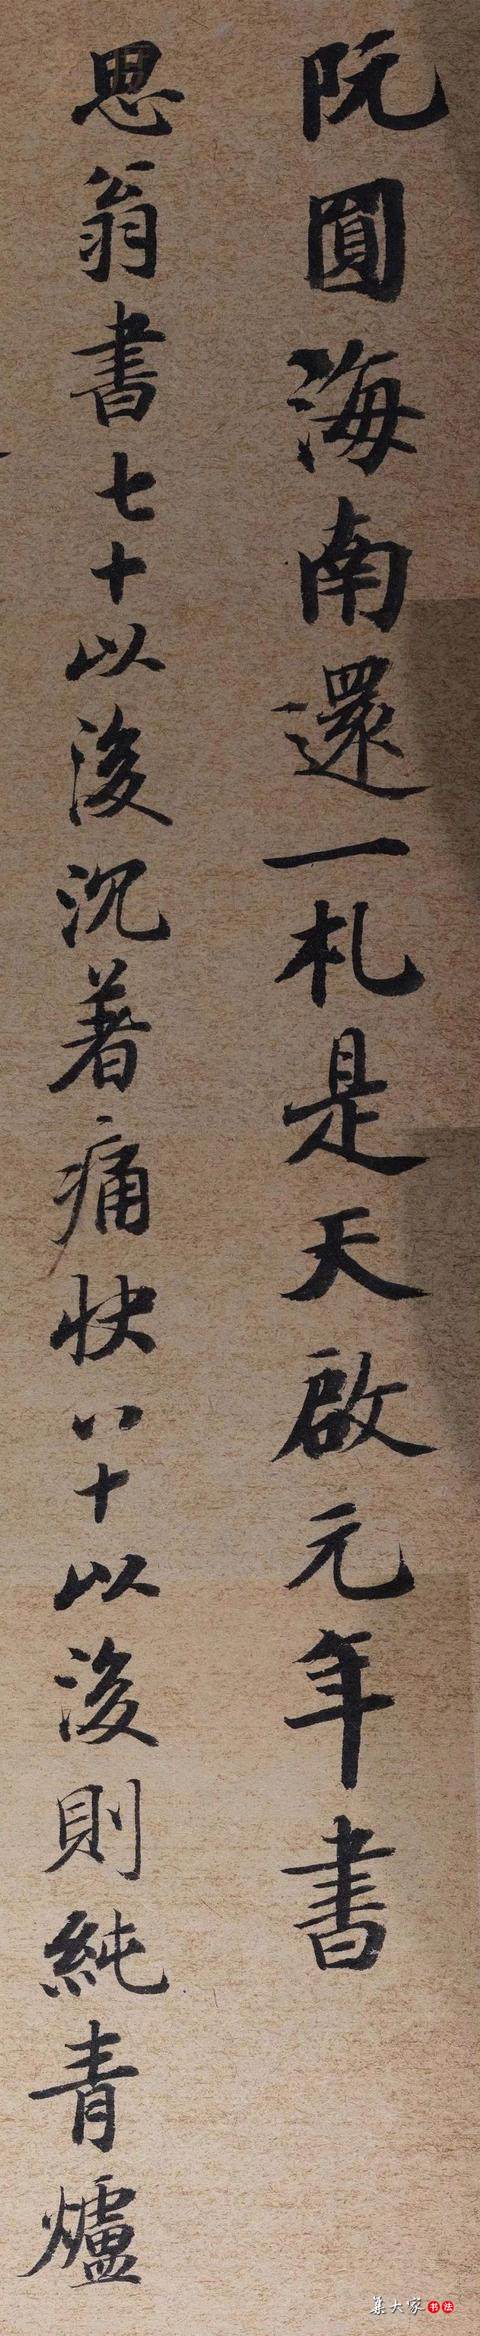 阮圓海南還一札是天啟元年書
思翁書七十以後沉著痛快八十以後則純青爐
集大家书法